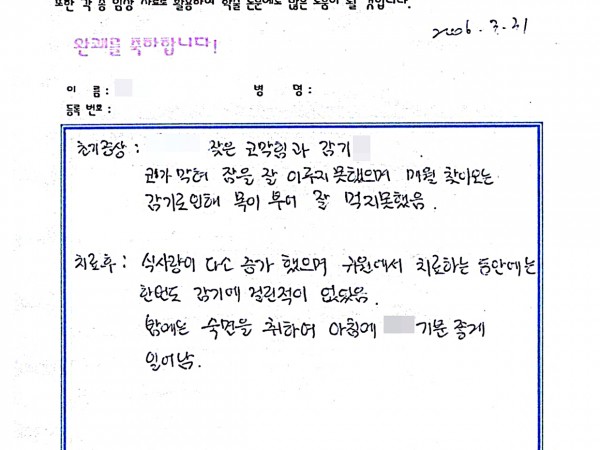 또한 각 종 임상 자료로 활용하여 학술 논문에도 많은 도움이 될 것입니다.
2006. 3. 21
완쾌를 축하합니다!
이 름 : 병 명 :
등록 번호 :
초기증상 : 잦은 코막힘과 감기
코가 막혀 잠을 잘 이루지 못했으며 매월 찾아오는
감기로 인해 목이 부어 잘 먹지못했음.
치료후 : 식사량이 다소 증가 했으며 귀원에서 치료하는 동안에는
한번도 감기에 걸린적이 없었음.
밤에는 숙면을 취하여 아침에 기분 좋게
일어남.